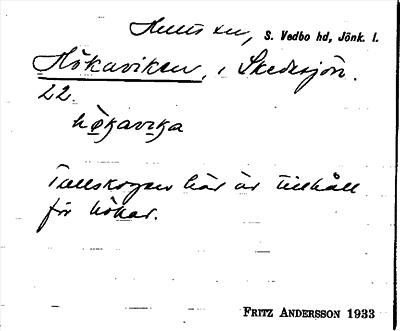 sn, S. Vedbo hd, Jönk. l.
Hökaviken, i Skedesjön.
22.
hökavika
Tallskogen här är tillhåll
för hökar.
FRITZ ANDERSSON 1933